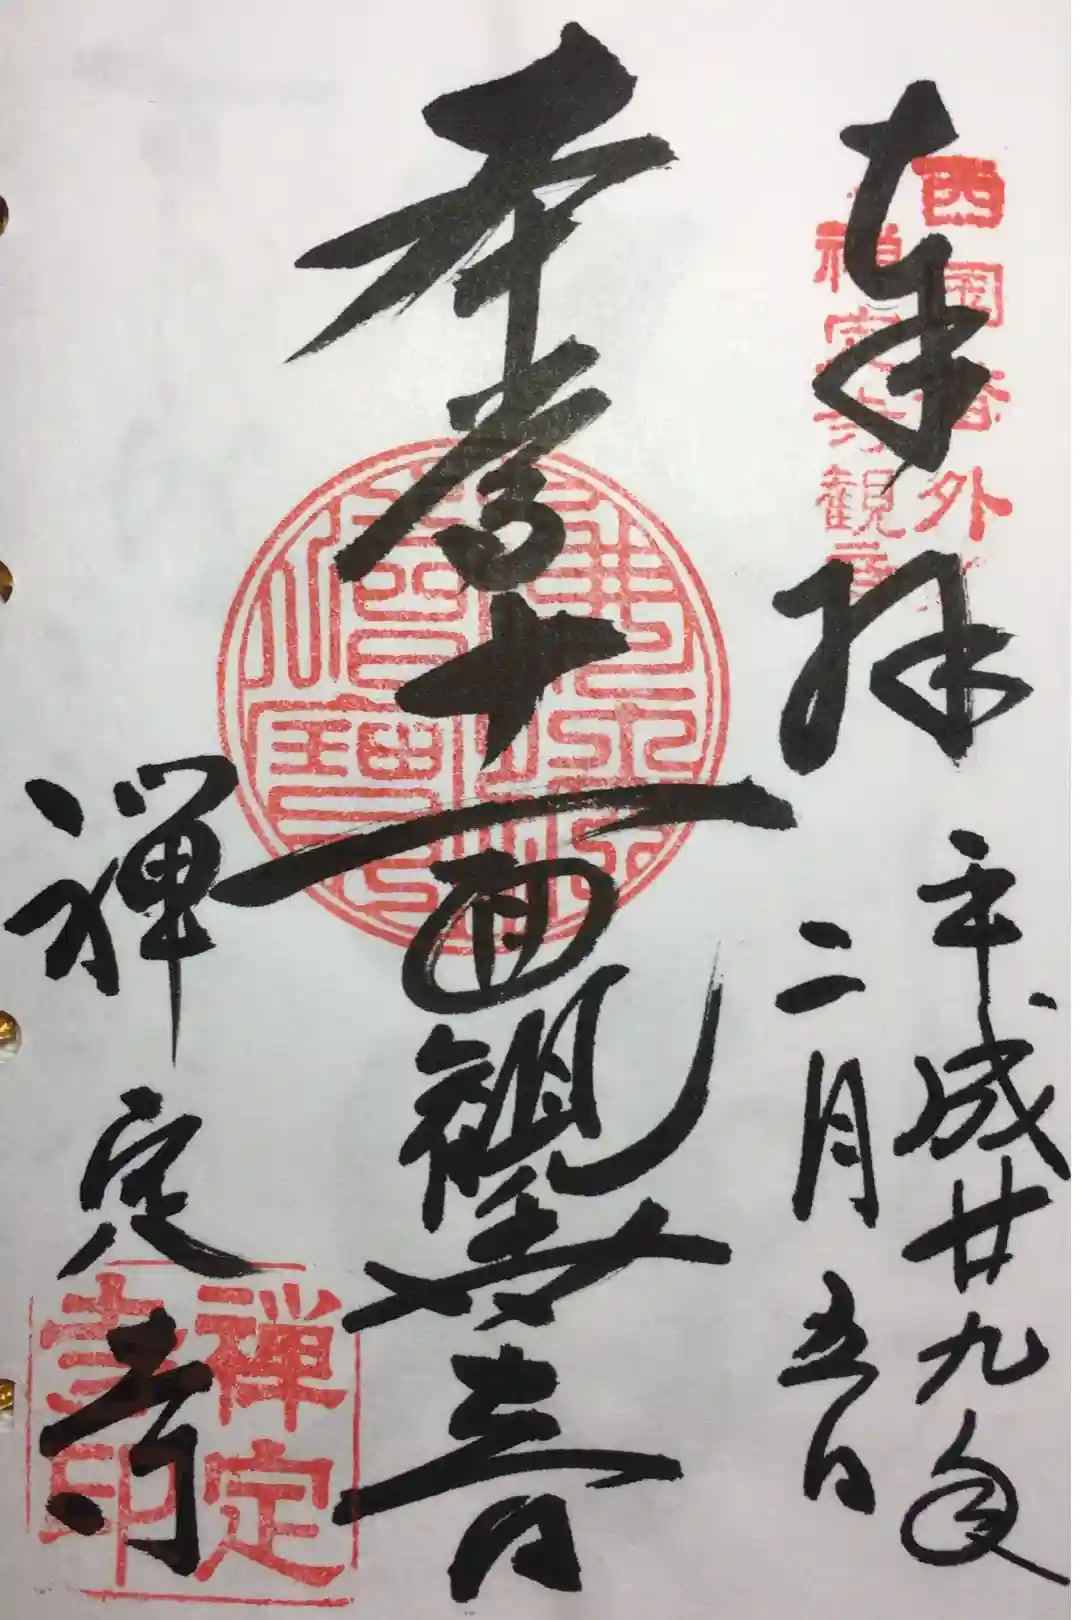 奉拝
西国番外
禅定寺観音
平成廿九年
二月五日
本尊十一面観世音
禅定寺
禅定寺印